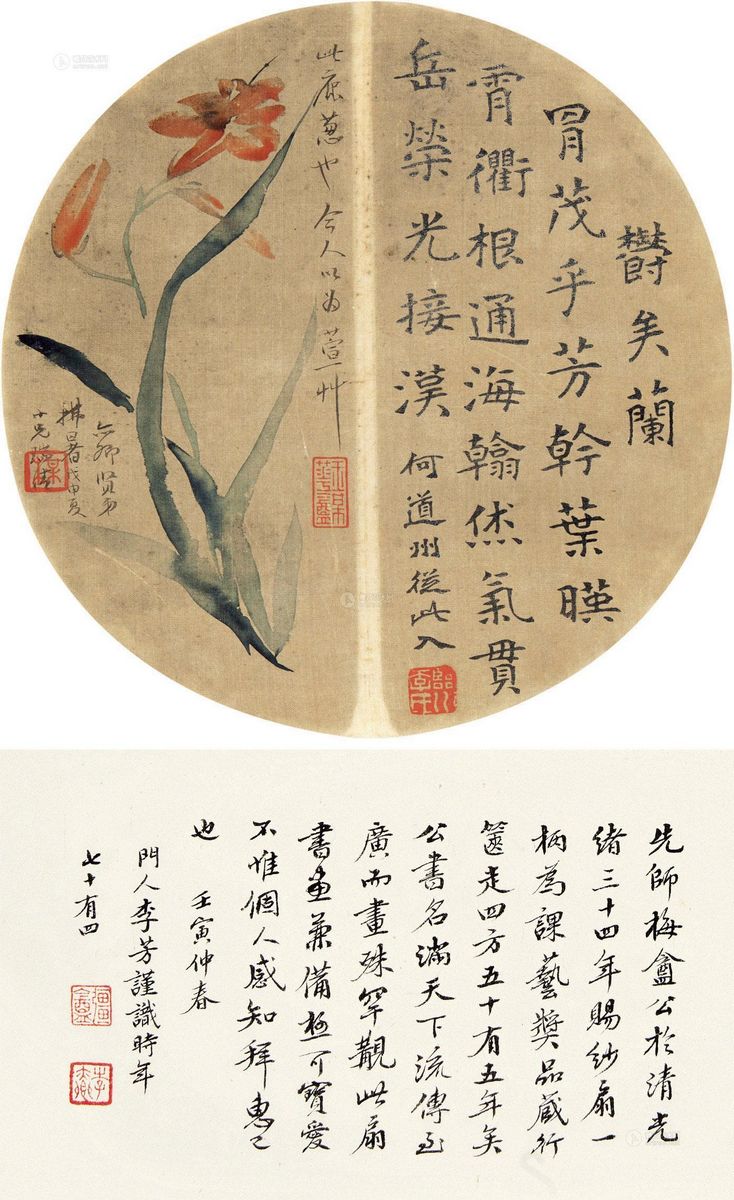 鬱矣蘭
冒茂乎芳幹葉暎
霄衢根通海翰烋氣貫
岳榮光接漢 何道州從此入
此鹿蔥也今人以为萱艸
六卿賢弟
拂暑戊申夏
先師梅盦公於清光
緒三十四年賜紗扇一
柄為課藝獎品藏行
篋走四方五十有五年矣
公書名滿天下流傳至
廣而畫殊罕觀此扇
書畫兼備極可寶愛
不惟個人感知拜惠已
也 壬寅仲春
門人李芳謹識時年
七十有四